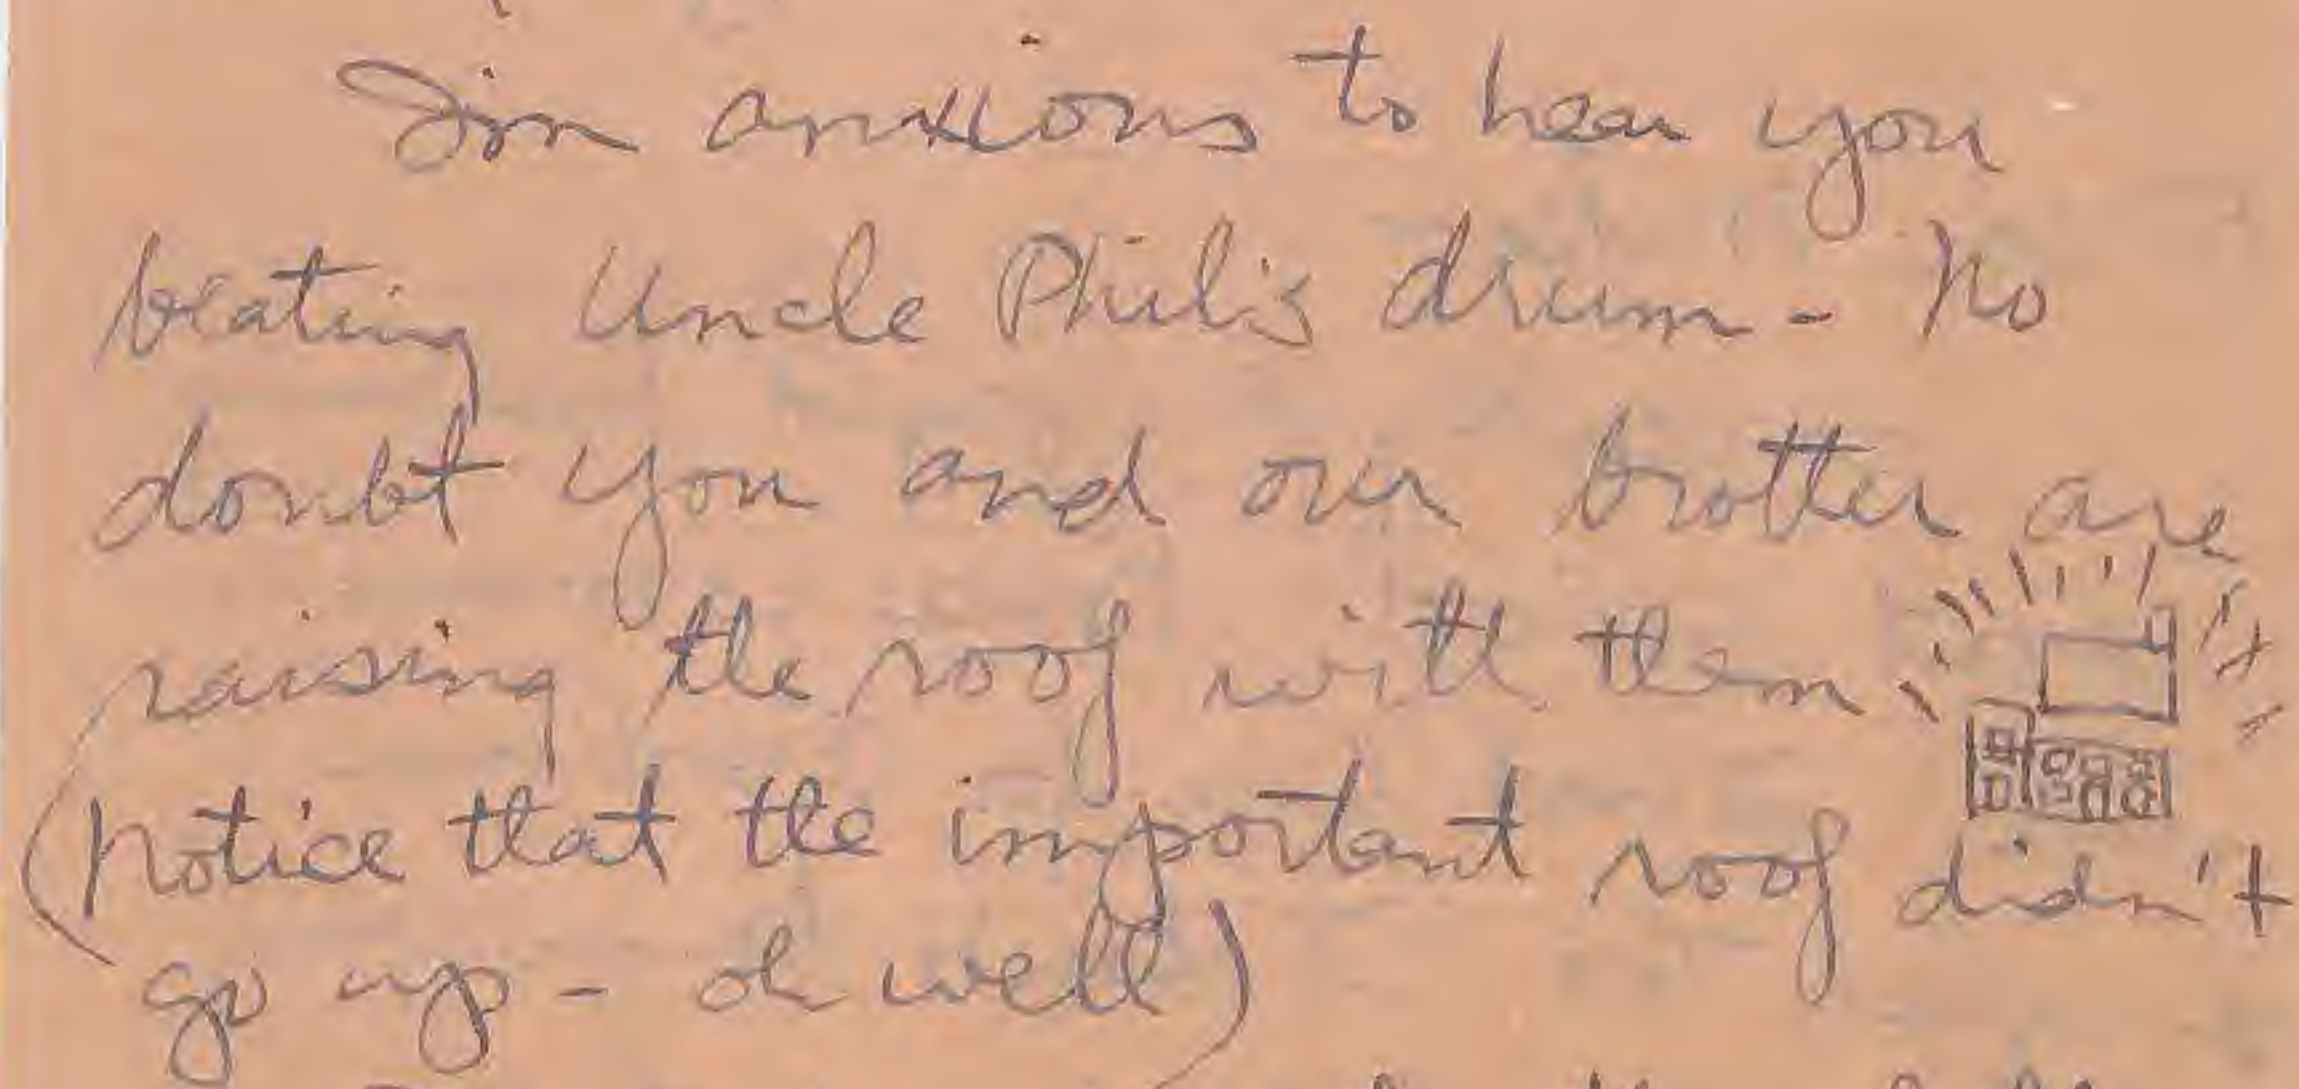 I'm anxious to hear you
beating Uncle Phil's drum - No
doubt you and our brother are
raising the roof with them
(Notice that the important roof didn't
go up - oh well)